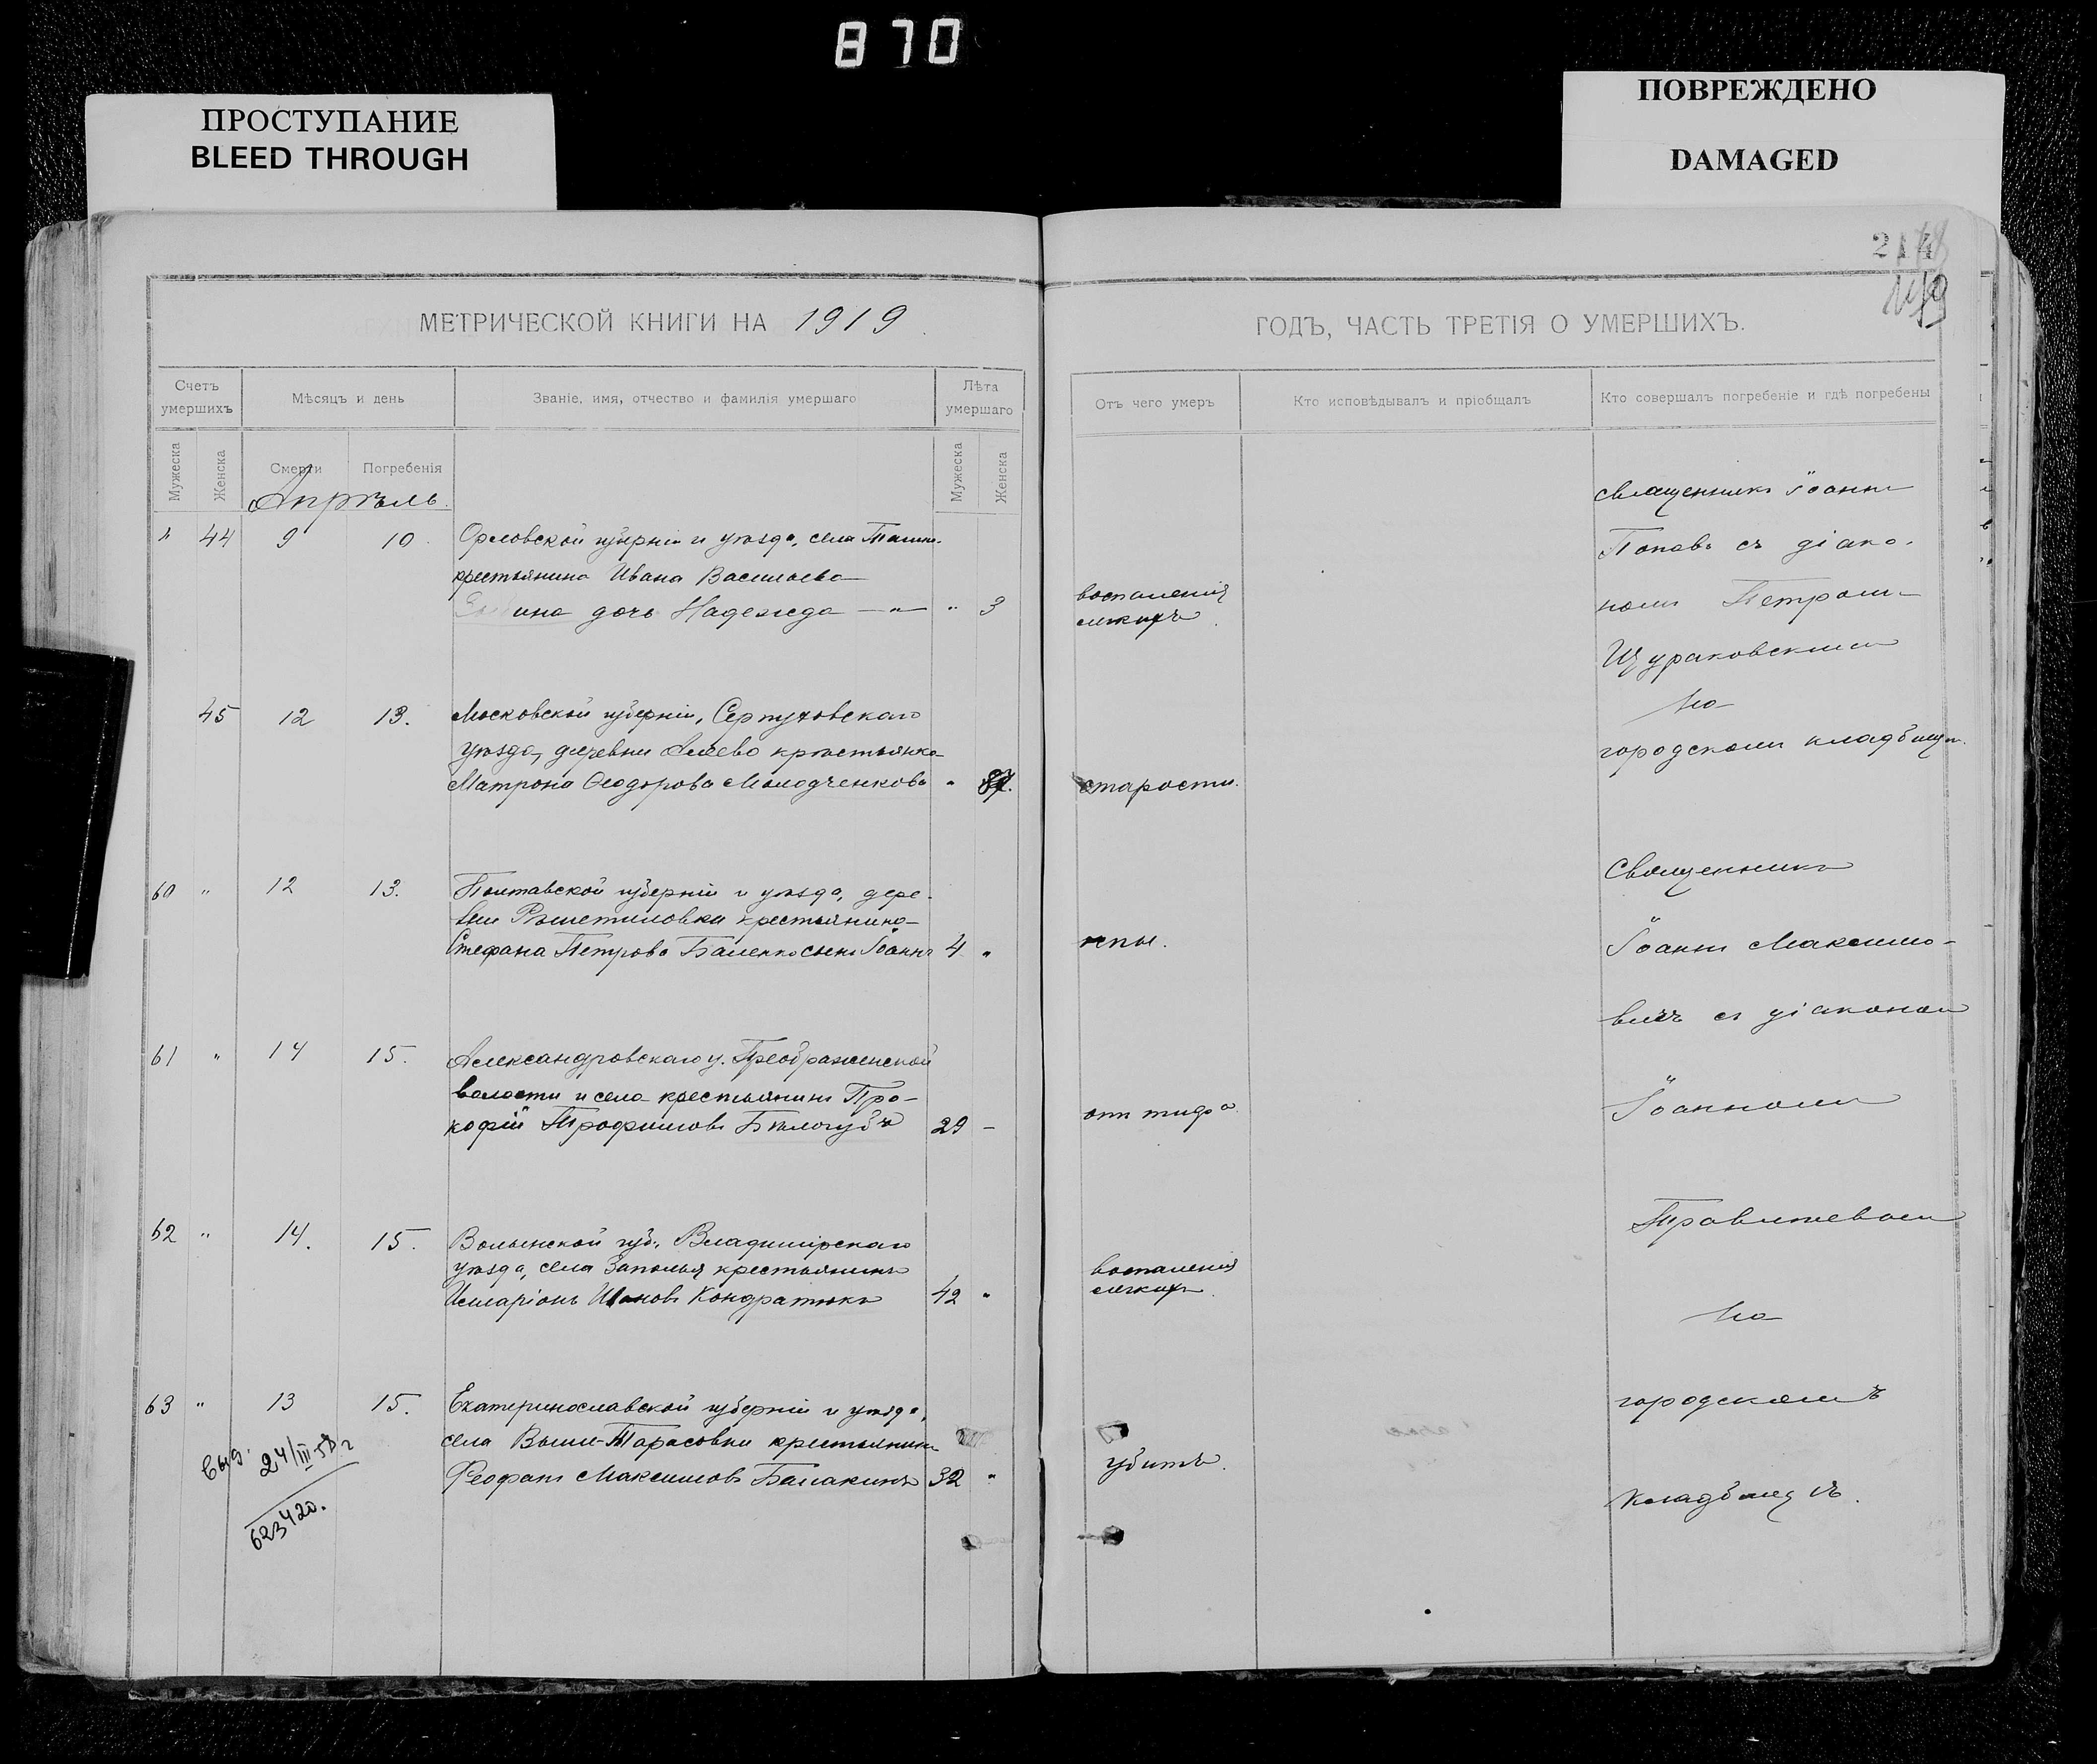 870
ПРОСТУПАНИЕ
BLEED THROUGH
ПОВРЕЖДЕНО
DAMAGED
МЕТРИЧЕСКОЙ КНИГИ НА 1919
Счетъ умершихъ
Мѣсяцъ и день
Званіе, имя, отчество и фамилія умершаго
Лѣта умершаго
Мужеска
Женска
Смерти
Погребенія
Мужеска
Женска
Апрѣль.
" 44 9 10. Орловской губерніи и уѣзда, села
крестьянина Ивана Васильева
ина дочь Надежда — " — " 3
45 12 13. Московской губерніи, Серпуховскаго
уѣзда, деревни крестьянка
Матрона Ѳеодорова Молодченкова "
60 " 12 13. Полтавской губерніи и уѣзда, дере-
вни Рѣшетиловки крестьянина
Стефана Петрова Баленко сынъ Іоаннъ 4 "
61 " 14 15. Александровскаго у. Преображенской
волости и села крестьянинъ Про-
кофій Трофимовъ Бѣлогубъ 29 –
62 " 14. 15. Волынской губ., Владимірскаго
уѣзда, села Заполья крестьянинъ
Илларіонъ Кондратюкъ 42 "
63 " 13 15. Екатеринославской губерніи и уѣзда,
села Выше-Тарасовки крестьянинъ
Феофанъ Максимовъ Балакинъ 32 "
Выд. 24/III-58 г
623420.
214
ГОДЪ, ЧАСТЬ ТРЕТІЯ О УМЕРШИХЪ.
Отъ чего умеръ
Кто исповѣдывалъ и пріобщалъ
Кто совершалъ погребеніе и гдѣ погребены
воспаленія
легкихъ.
старости.
оспы.
отъ тифа.
воспаленія
легкихъ.
убитъ.
Священникъ Іоаннъ
Поповъ съ діако-
номъ Петромъ
Щураковскимъ
на
городскомъ кладбищѣ.
Священникъ
Іоаннъ Максимо-
вичъ съ діакономъ
Іоанномъ
на
городскомъ
кладбищѣ.